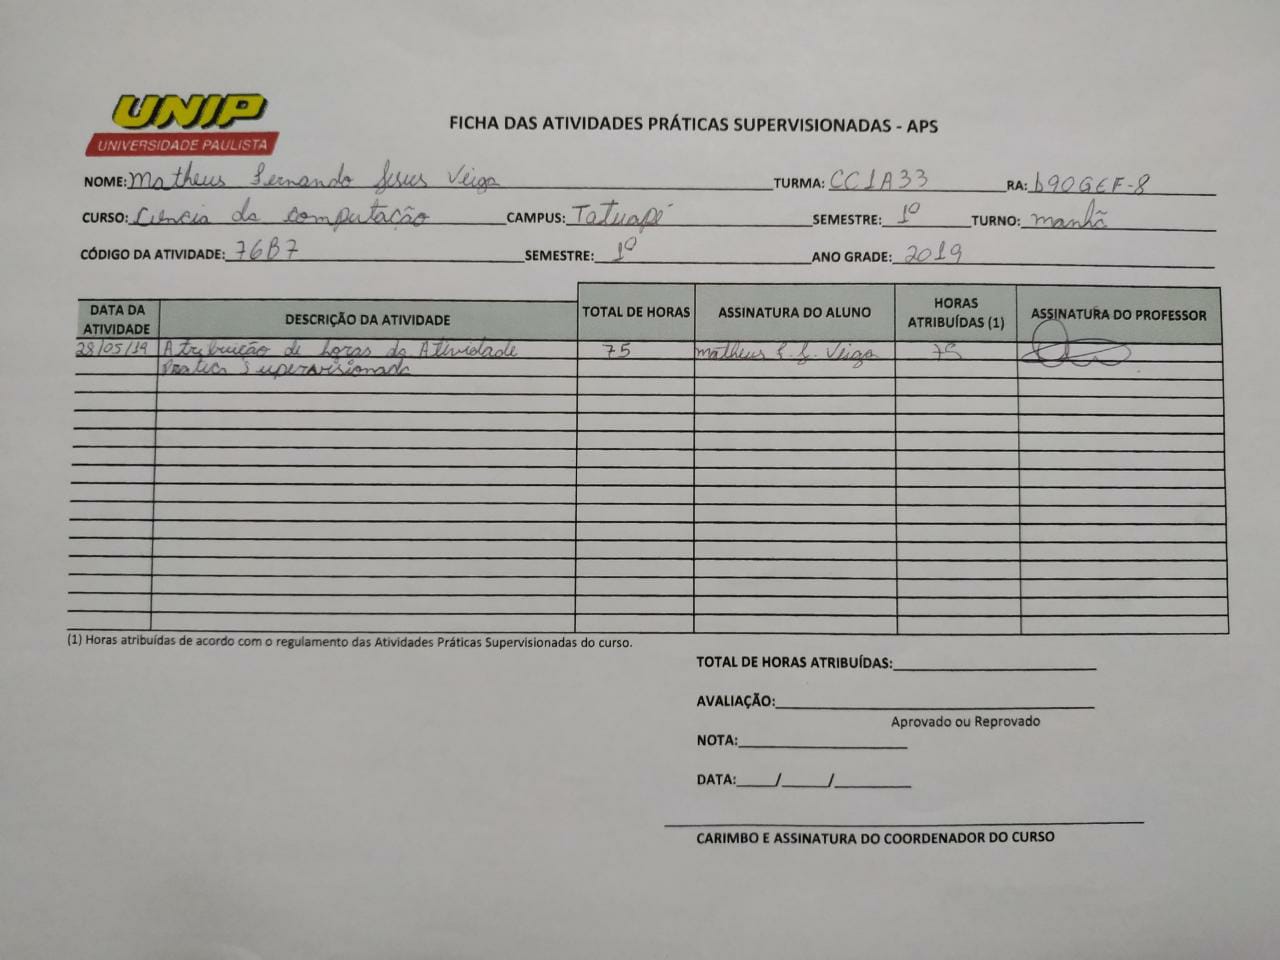 UNIP
UNIVERSIDADE PAULISTA
FICHA DAS ATIVIDADES PRÁTICAS SUPERVISIONADAS - APS
NOME: Matheus Fernando Jesus Veiga TURMA: CC1A33 RA: D90GEF-8
CURSO: Ciencia da computação CAMPUS: Tatuapé SEMESTRE: 1º TURNO: manhã
CÓDIGO DA ATIVIDADE: 76B7 SEMESTRE: 1º ANO GRADE: 2019
DATA DA ATIVIDADE DESCRIÇÃO DA ATIVIDADE TOTAL DE HORAS ASSINATURA DO ALUNO HORAS ATRIBUÍDAS (1) ASSINATURA DO PROFESSOR
28/05/19 Atribuição de horas da Atividade 75 Matheus F. J. Veiga 75
Pratica Supervisionada
(1) Horas atribuídas de acordo com o regulamento das Atividades Práticas Supervisionadas do curso.
TOTAL DE HORAS ATRIBUÍDAS:
AVALIAÇÃO:
Aprovado ou Reprovado
NOTA:
DATA: / /
CARIMBO E ASSINATURA DO COORDENADOR DO CURSO